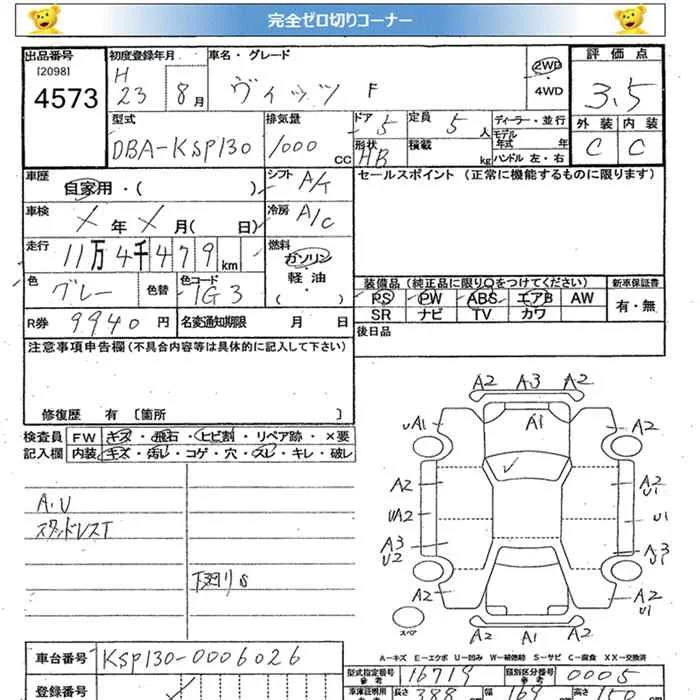 完全ゼロ切りコーナー
出品番号 初度登録年月 車名・グレード 評価点
[2098] H 2WD
4573 23 8月 ヴィッツ F 4WD 3.5
型式 排気量 ドア 5 定員 5人 ディーラー・並行 外装 内装
DBA-KSP130 1000CC 形状 HB 積載 kg モデル年式 年 C C
ハンドル 左・右
車歴 自家用・( ) シフト A/T セールスポイント (正常に機能するものに限ります)
車検 X年 X月( 日) 冷房 A/C
走行 11万4千479km 燃料 ガソリン
色 グレー 色替 色コード 1G3 軽油 ・ ( )
装備品 (純正品に限り○をつけてください) 新車保証書
PS PW ABS エアB AW 有・無
SR ナビ TV カワ
R券 9940円 名変通知期限 月 日 後日品
注意事項申告欄(不具合内容等は具体的に記入して下さい)
修復歴 有 [箇所 ]
検査員 FW キズ・飛石・ヒビ割・リペア跡・×要
記入欄 内装 キズ・汚レ・コゲ・穴・スレ・キレ・破レ
A2 A3 A2
UA1 A1 A2
A2 A2 U1
UA2 U1
A3 U2 A3 U1
A2 A2 U1
A2 A1 A2
スペア
A.U
スタッドレスT
下廻りS
A-キズ E-エクボ U-凹み W-補修跡 S-サビ C-腐食 XX-交換済
車台番号 KSP130-0006026
型式指定番号 参考 16719 類別区分番号 参考 0005
登録番号
長さ 388 幅 169 高さ 150